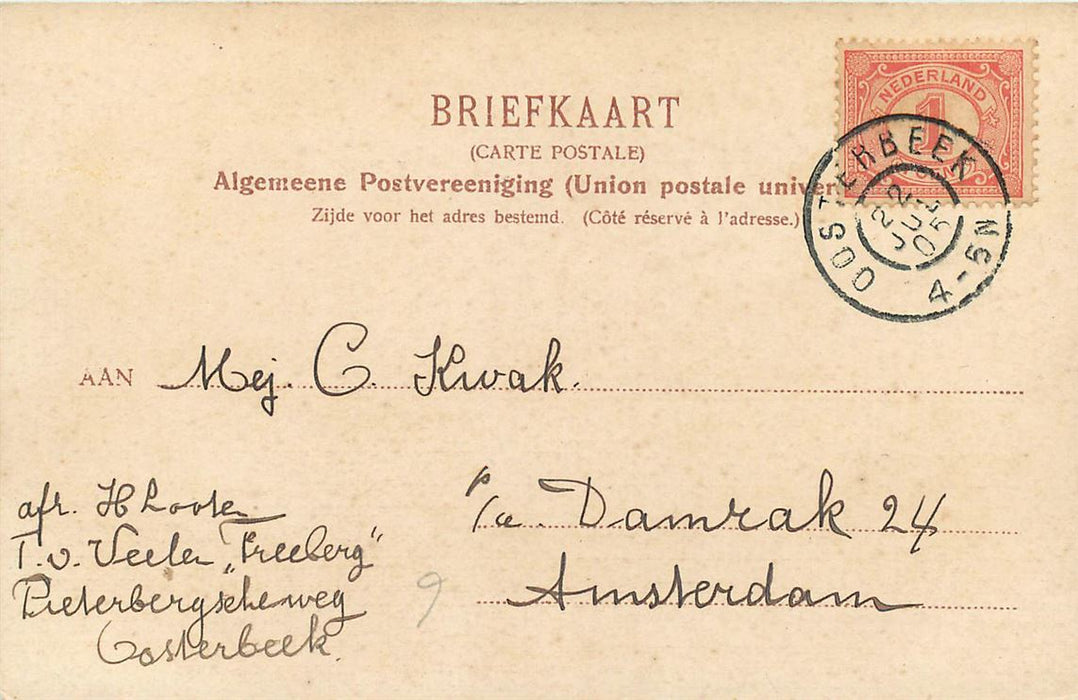 BRIEFKAART
(CARTE POSTALE)
Algemeene Postvereeniging (Union postale univer
Zijde voor het adres bestemd. (Côté réservé à l'adresse.)
NEDERLAND
1
OOSTERBEEK
22
JUL
05
4-5N
AAN Mej. C. Kwak.
p/a. Damrak 24
Amsterdam
afz. H
T. v. "Freeberg"
Pieterbergscheweg
Oosterbeek.
9